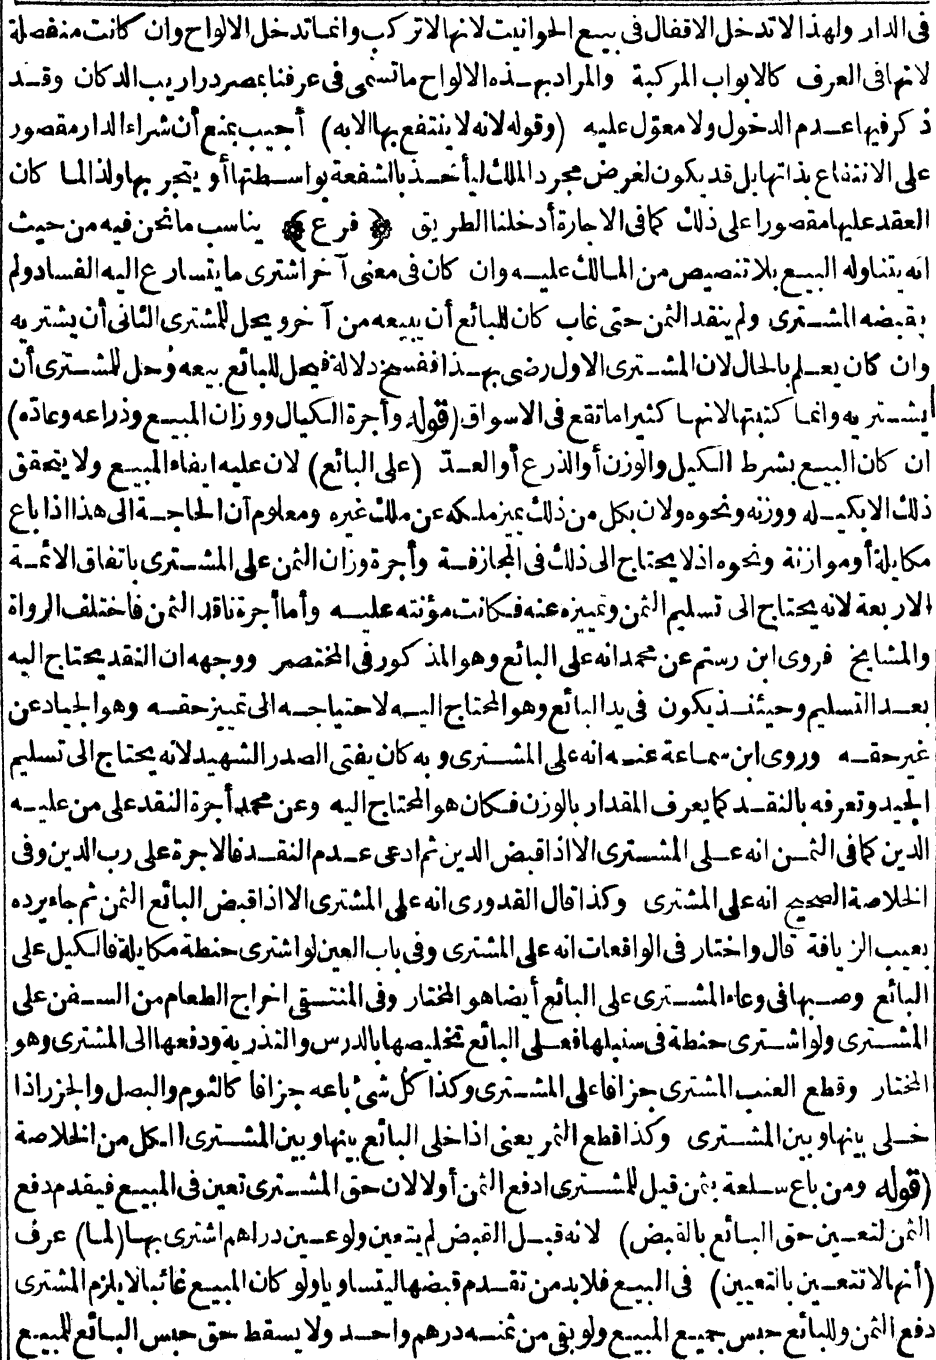 فى الدار ولهذا لا تدخل الاقفال فى بيع الحوانيت لانها لا تركب وانما تدخل الالواح وان كانت منفصلة
لانها فى العرف كالابواب المركبة والمراد بهذه الالواح ما تسمى فى عرفنا بمصر دراريب الدكان وقد
ذكر فيها عدم الدخول ولا معول عليه (وقوله لانه لا ينتفع بها الا به) أجيب بمنع أن شراء الدار مقصور
على الانتفاع بذاتها بل قد يكون لغرض مجرد الملك ليأخذ بالشفعة بواسطتها أو يتجر بها ولذا لما كان
العقد عليها مقصورا على ذلك كما فى الاجارة أدخلنا الطريق ﴿ فرع ﴾ يناسب ما نحن فيه من حيث
انه يتناوله البيع بلا تنصيص من المالك عليه وان كان فى معنى آخر اشترى ما يتسارع اليه الفساد ولم
يقبضه المشترى ولم ينقد الثمن حتى غاب كان للبائع أن يبيعه من آخر ويحل للمشترى الثانى أن يشتريه
وان كان يعلم بالحال لان المشترى الاول رضى بهذا فسخ دلالة فيحل للبائع بيعه وحل للمشترى أن
يشتريه وانما كتبتها لانها كثيرا ما تقع فى الاسواق (قوله وأجرة الكيال ووزان المبيع وذراعه وعاده)
ان كان البيع بشرط الكيل والوزن أو الذرع أو العد (على البائع) لان عليه ايفاء المبيع ولا يتحقق
ذلك الا بكيله ووزنه ونحوه ولان بكل من ذلك يميز ملكه عن ملك غيره ومعلوم أن الحاجة الى هذا اذا باع
مكايلة أو موازنة ونحوه اذ لا يحتاج الى ذلك فى المجازفة وأجرة وزان الثمن على المشترى باتفاق الائمة
الاربعة لانه يحتاج الى تسليم الثمن وتمييزه عنه فكانت مؤنته عليه وأما أجرة ناقد الثمن فاختلف الرواة
والمشايخ فروى ابن رستم عن محمد انه على البائع وهو المذكور فى المختصر ووجهه ان النقد يحتاج اليه
بعد التسليم وحينئذ يكون فى يد البائع وهو المحتاج اليه لاحتياجه الى تمييز حقه وهو الجياد عن
غير حقه وروى ابن سماعة عنه انه على المشترى وبه كان يفتى الصدر الشهيد لانه يحتاج الى تسليم
الجيد وتعرفه بالنقد كما يعرف المقدار بالوزن فكان هو المحتاج اليه وعن محمد أجرة النقد على من عليه
الدين كما فى الثمن انه على المشترى الا اذا قبض الدين ثم ادعى عدم النقد فالاجرة على رب الدين وفى
الخلاصة الصحيح انه على المشترى وكذا قال القدورى انه على المشترى الا اذا قبض البائع الثمن ثم جاء يرده
بعيب الزيافة قال واختار فى الواقعات انه على المشترى وفى باب العين لو اشترى حنطة مكايلة فالكيل على
البائع وصبها فى وعاء المشترى على البائع أيضا هو المختار وفى المنتقى اخراج الطعام من السفن على
المشترى ولو اشترى حنطة فى سنبلها فعلى البائع تخليصها بالدرس والتذرية ودفعها الى المشترى وهو
المختار وقطع العنب المشترى جزافا على المشترى وكذا كل شئ باعه جزافا كالثوم والبصل والجزر اذا
خلى بينها وبين المشترى وكذا قطع الثمر يعنى اذا خلى البائع بينها وبين المشترى الكل من الخلاصة
(قوله ومن باع سلعة بثمن قيل للمشترى ادفع الثمن أولا لان حق المشترى تعين فى المبيع فيقدم دفع
الثمن لتعين حق البائع بالقبض) لانه قبل القبض لم يتعين ولو عين دراهم اشترى بها (لما) عرف
(أنها لا تتعين بالتعيين) فى البيع فلا بد من تقدم قبضها ليتساويا ولو كان المبيع غائبا لا يلزم المشترى
دفع الثمن وللبائع حبس جميع المبيع ولو بقى من ثمنه درهم واحد ولا يسقط حق حبس البائع للمبيع